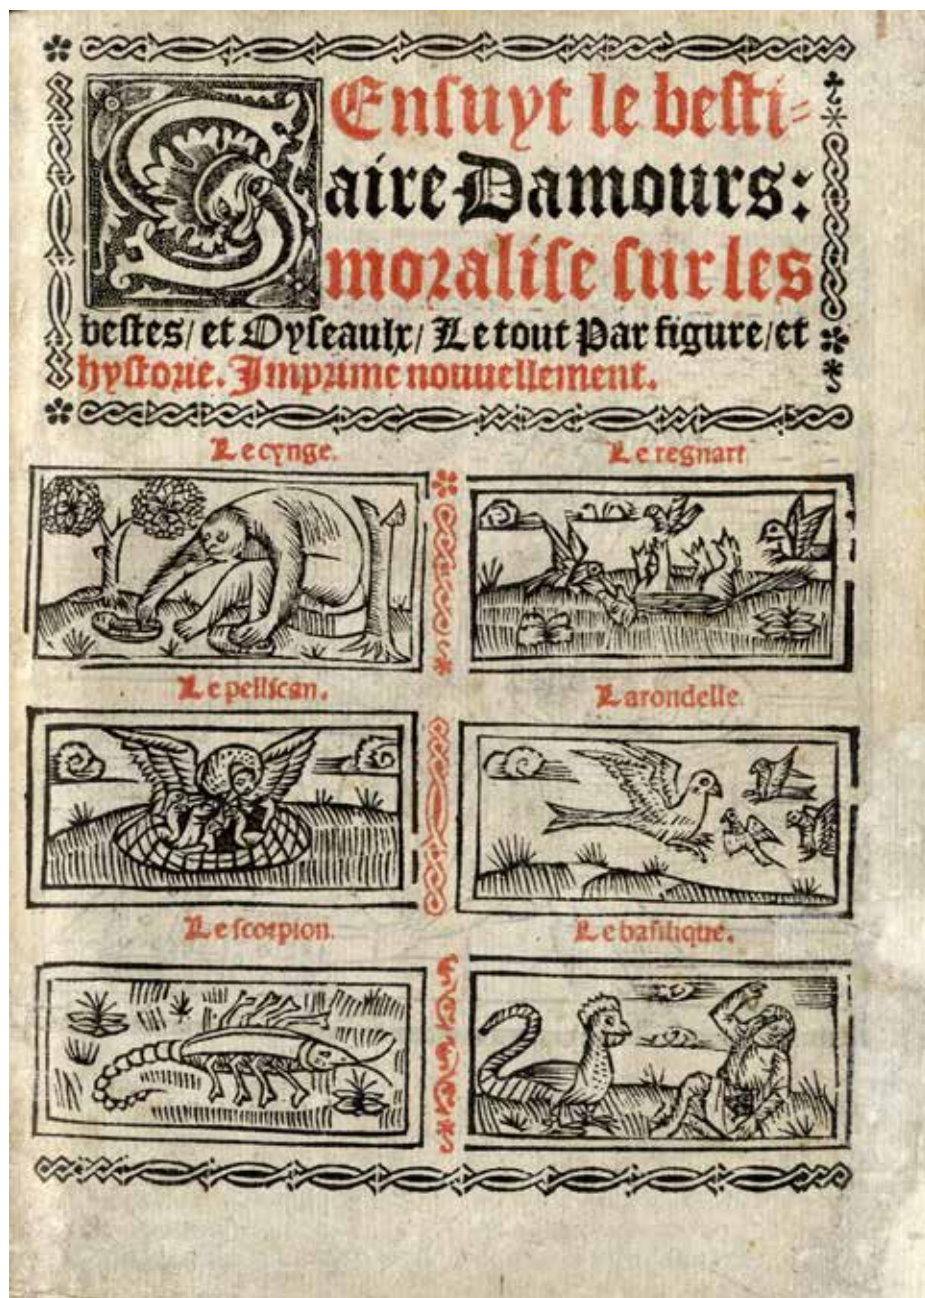 SEnsuyt le besti=
aire Damours:
moralise sur les
bestes/ et Oyseaulx/ Le tout Par figure/ et
hystorie. Imprime nouuellement.
Le cynge.
Le regnart
Le pellican.
Larondelle.
Le scorpion.
Le basilique.